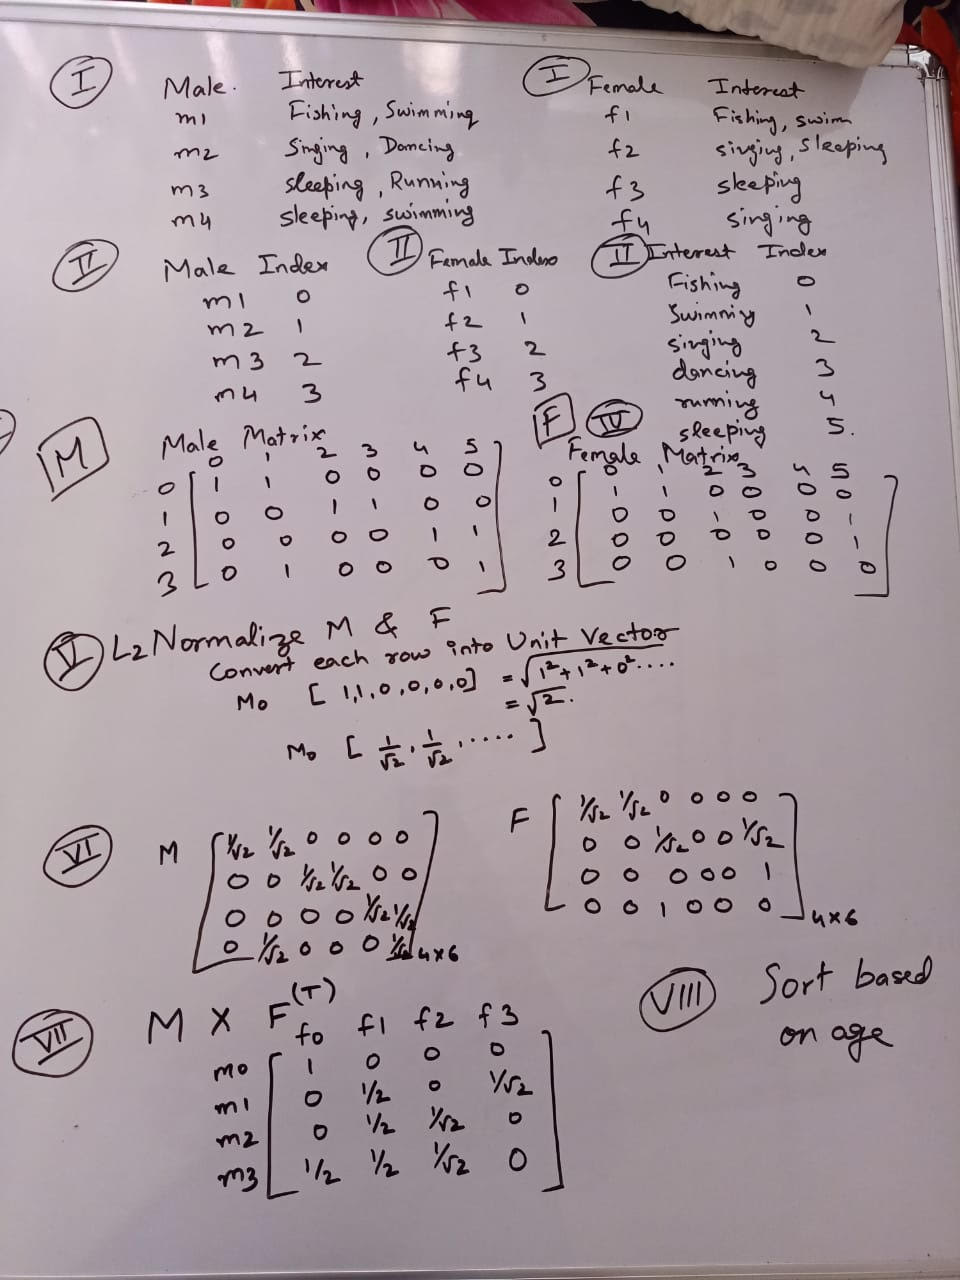 I Male. Interest
m1 Fishing, Swimming
m2 Singing, Dancing
m3 sleeping, Running
m4 sleeping, swimming
I Female Interest
f1 Fishing, swim
f2 singing, sleeping
f3 sleeping
f4 singing
II Male Index
m1 0
m2 1
m3 2
m4 3
II Female Index
f1 0
f2 1
f3 2
f4 3
II Interest Index
Fishing 0
Swimming 1
singing 2
dancing 3
running 4
sleeping 5.
M Male Matrix
0 1 2 3 4 5
0 1 1 0 0 0 0
1 0 0 1 1 0 0
2 0 0 0 0 1 1
3 0 1 0 0 0 1
F IV
Female Matrix
0 1 2 3 4 5
0 1 1 0 0 0 0
1 0 0 1 0 0 1
2 0 0 0 0 0 1
3 0 0 1 0 0 0
V L2 Normalize M & F
Convert each row into Unit Vector
M0 [1,1,0,0,0,0] = √1²+1²+0²....
= √2.
M0 [1/√2, 1/√2, .....]
VI M
1/√2 1/√2 0 0 0 0
0 0 1/√2 1/√2 0 0
0 0 0 0 1/√2 1/√2
0 1/√2 0 0 0 1/√2 4×6
F
1/√2 1/√2 0 0 0 0
0 0 1/√2 0 0 1/√2
0 0 0 0 0 1
0 0 1 0 0 0 4×6
VII M X F(T)
f0 f1 f2 f3
m0 1 0 0 0
m1 0 1/2 0 1/√2
m2 0 1/2 1/√2 0
m3 1/2 1/2 1/√2 0
VIII Sort based
on age